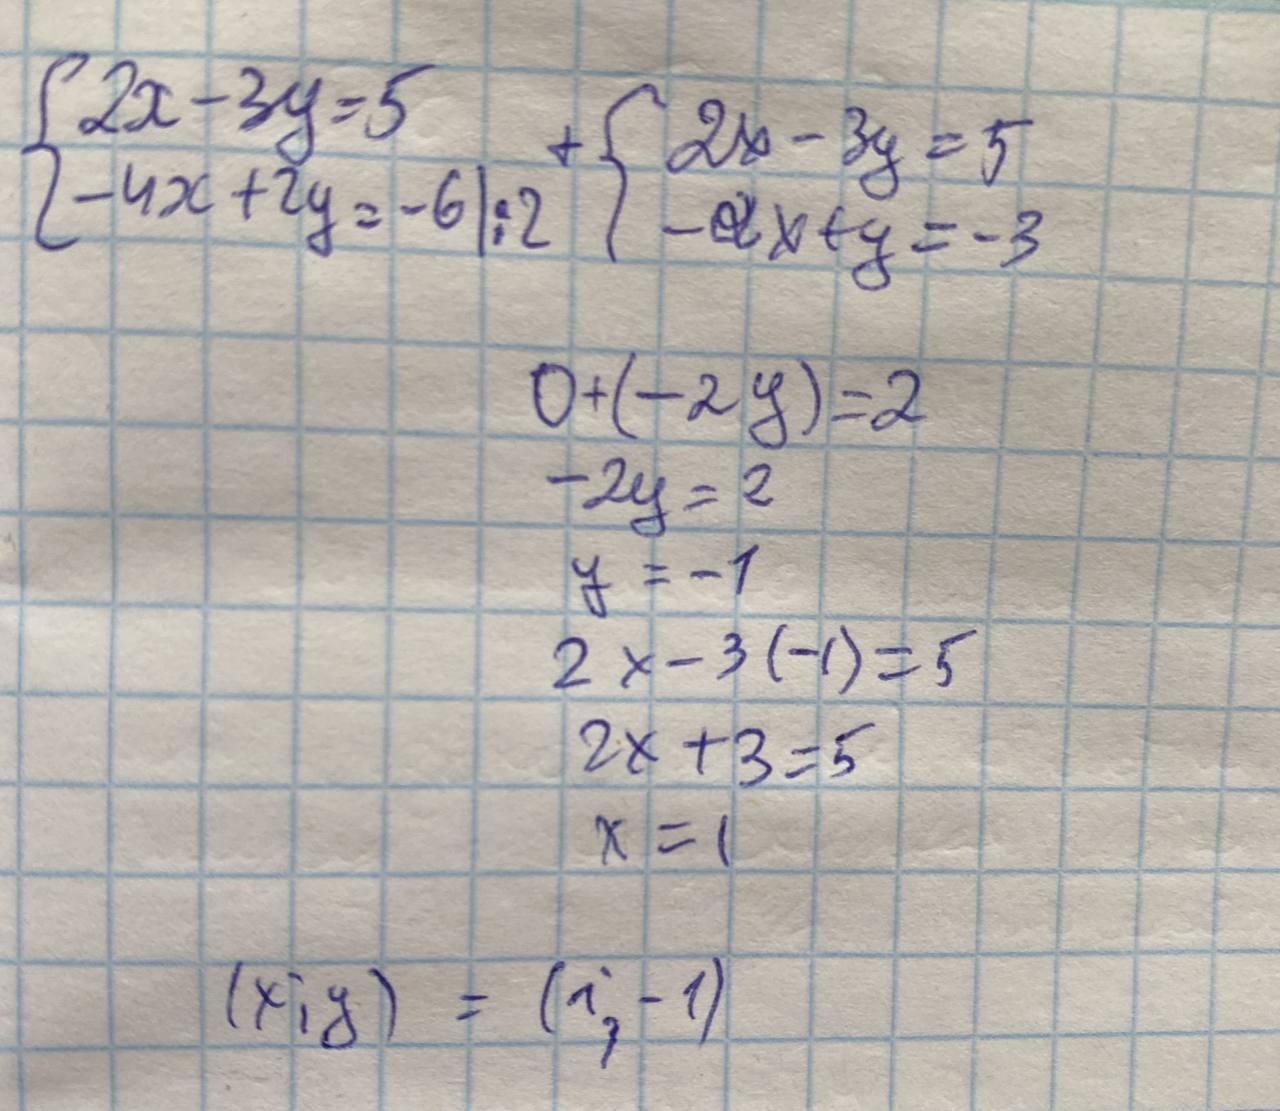 {2x-3y=5
{-4x+2y=-6|:2
+{2x-3y=5
{-2x+y=-3
0+(-2y)=2
-2y=2
y=-1
2x-3(-1)=5
2x+3=5
x=1
(x;y) = (1;-1)